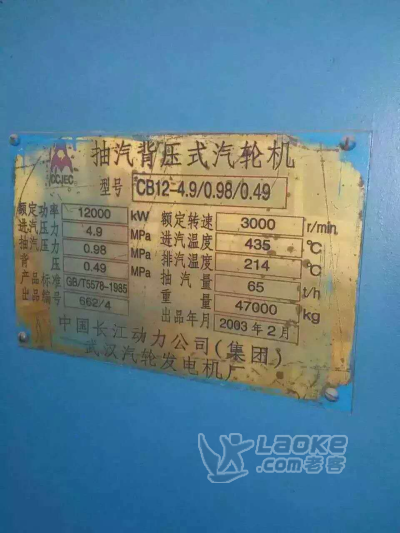 CCJEC
抽汽背压式汽轮机
型号 CB12-4.9/0.98/0.49
额定功率 12000 kW 额定转速 3000 r/min
进汽压力 4.9 MPa 进汽温度 435 ℃
抽汽压力 0.98 MPa 排汽温度 214 ℃
背压 0.49 MPa 抽汽量 65 t/h
产品标准 GB/T5578-1985 重量 47000 kg
出品编号 662/4 出品年月 2003年2月
中国长江动力公司(集团)
武汉汽轮发电机厂
LAOKE
.com老客